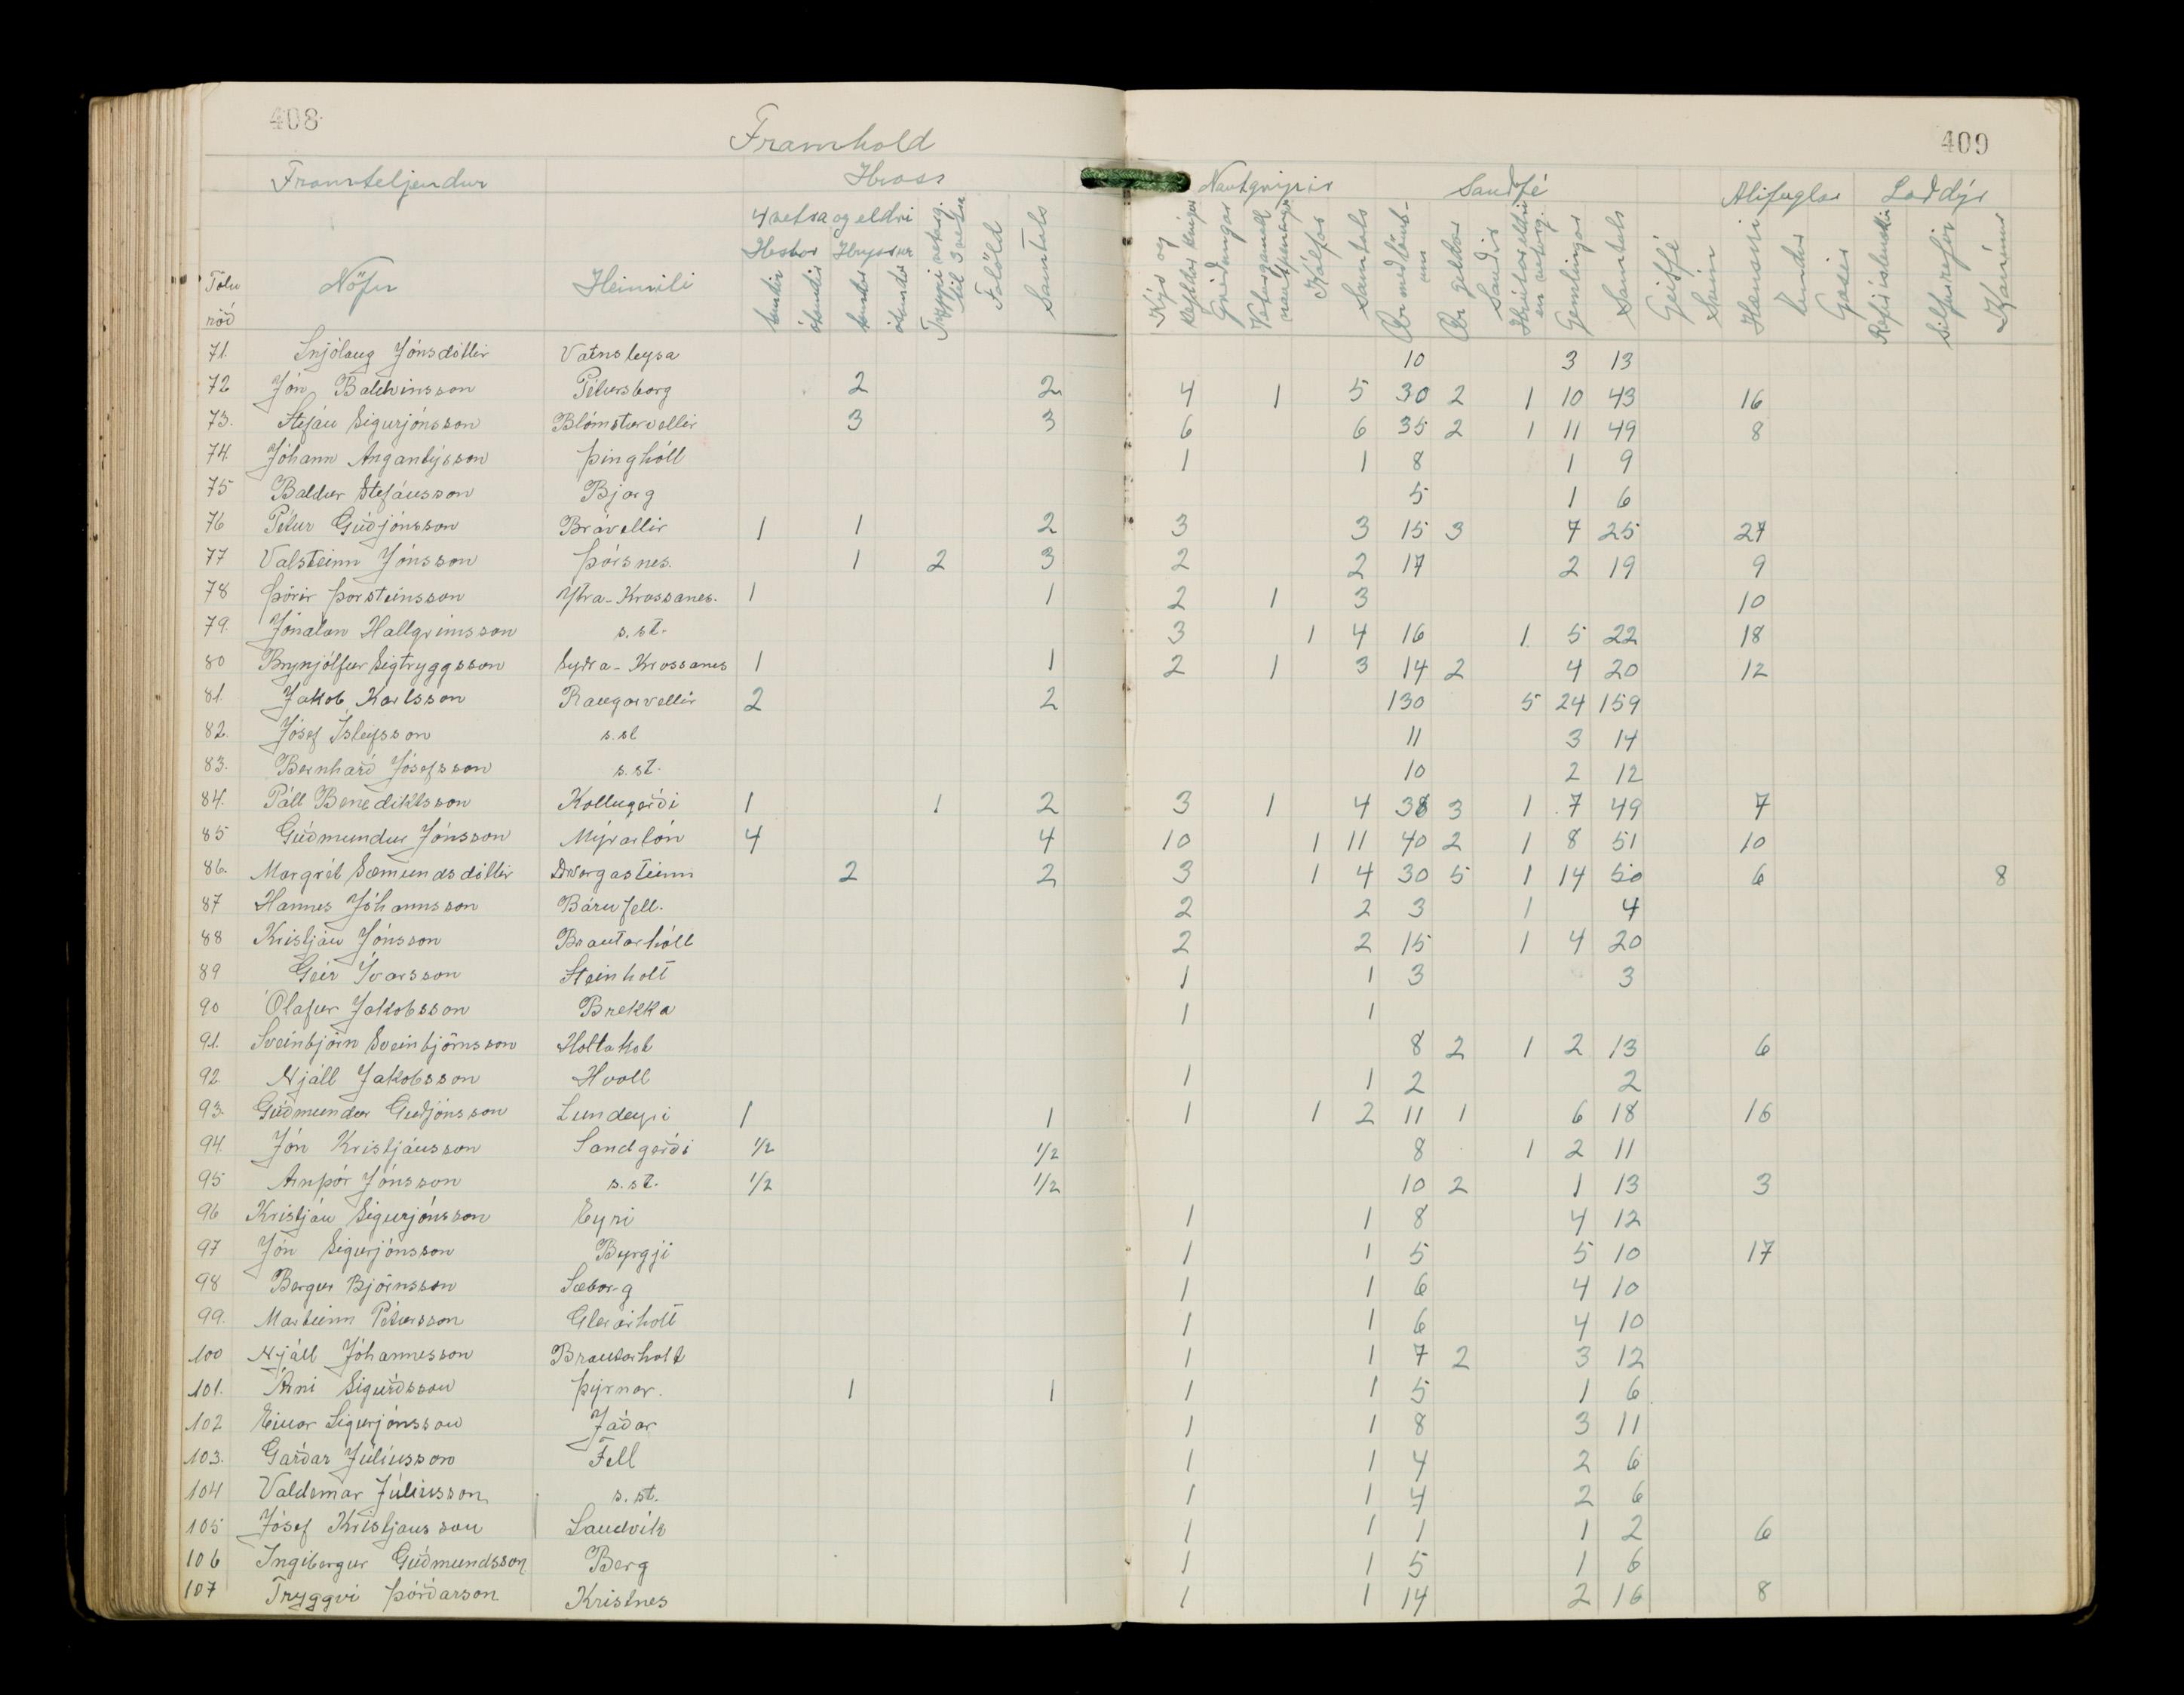 408
409
Framhald
Framteljendur Hross Nautgripir Sauðfé Alifuglar Loðdýr
4 vetra og eldri
Hestar Hryssur
Tölu
röð
Nöfn Heimili
tamdir
ótamdir
tamdar
ótamdar
Tryppi veturg.
til 3 vetra
Folöld
Samtals
Kýr og
kelfdar kvígur
Griðungar
Veturgamall
nautpeningur
Kálfar
Samtals
Ær með lömb-
um
Ær geldar
Sauðir
Hrútar eldri
en veturg.
Gemlingar
Samtals
Geitfé
Svín
Hænsni
Endur
Gæsir
Refir íslenskir
Silfurrefir
Kanínur
71. Snjólaug Jónsdóttir Vatnsleysa 10 3 13
72 Jón Baldvinsson Pétursborg 2 2 4 1 5 30 2 1 10 43 16
73. Stefán Sigurjónsson Blómsturvellir 3 3 6 6 35 2 1 11 49 8
74. Jóhann Angantýsson Þinghóll 1 1 8 1 9
75 Baldur Stefánsson Bjarg 5 1 6
76 Pétur Guðjónsson Brávellir 1 1 2 3 3 15 3 7 25 27
77 Valsteinn Jónsson Þórsnes. 1 2 3 2 2 17 2 19 9
78 Þórir Þorsteinsson Ytra-Krossanes. 1 1 2 1 3 10
79. Jónatan Hallgrímsson s.st. 3 1 4 16 1 5 22 18
80 Brynjólfur Sigtryggsson Syðra-Krossanes 1 1 2 1 3 14 2 4 20 12
81. Jakob Karlsson Rangárvellir 2 2 130 5 24 159
82. Jósef Ísleifsson s.st 11 3 14
83. Bernharð Jósefsson s.st. 10 2 12
84. Páll Benediktsson Kollugerði 1 1 2 3 1 4 38 3 1 7 49 7
85 Guðmundur Jónsson Mýrarlón 4 4 10 1 11 40 2 1 8 51 10
86. Margrét Sæmundsdóttir Dvergasteinn 2 2 3 1 4 30 5 1 14 50 6 8
87 Hannes Jóhannsson Bárufell. 2 2 3 1 4
88 Kristján Jónsson Brautarhóll 2 2 15 1 4 20
89 Geir Ívarsson Steinholt 1 1 3 3
90 Ólafur Jakobsson Brekka 1 1
91. Sveinbjörn Sveinbjörnsson Holtakot 8 2 1 2 13 6
92. Njáll Jakobsson Hvoll 1 1 2 2
93. Guðmundur Guðjónsson Lundeyri 1 1 1 1 2 11 1 6 18 16
94. Jón Kristjánsson Sandgerði 1/2 1/2 8 1 2 11
95 Arnþór Jónsson s.st. 1/2 1/2 10 2 1 13 3
96 Kristján Sigurjónsson Eyri 1 1 8 4 12
97 Jón Sigurjónsson Byrgji 1 1 5 5 10 17
98 Bergur Björnsson Sæborg 1 1 6 4 10
99. Marteinn Pétursson Glerárholt 1 1 6 4 10
100 Njáll Jóhannesson Brautarholt 1 1 7 2 3 12
101. Árni Sigurðsson Þyrnar. 1 1 1 1 5 1 6
102 Einar Sigurjónsson Jaðar 1 1 8 3 11
103. Garðar Júlíusson Fell 1 1 4 2 6
104 Valdemar Júlíusson s.st. 1 1 4 2 6
105 Jósef Kristjansson Sandvík 1 1 1 1 2 6
106 Ingibergur Guðmundsson Berg 1 1 5 1 6
107 Tryggvi Þórðarson Kristnes 1 1 14 2 16 8